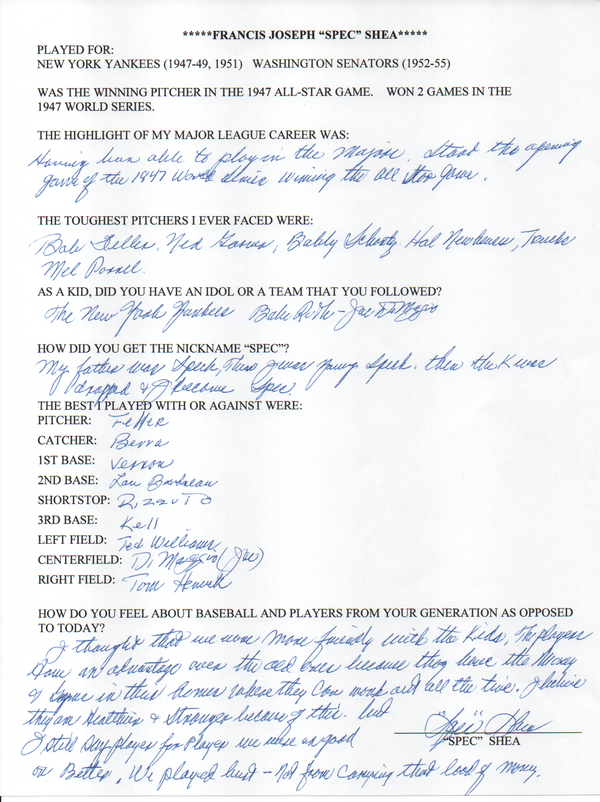 *****FRANCIS JOSEPH “SPEC” SHEA*****
PLAYED FOR:
NEW YORK YANKEES (1947-49, 1951) WASHINGTON SENATORS (1952-55)
WAS THE WINNING PITCHER IN THE 1947 ALL-STAR GAME. WON 2 GAMES IN THE
1947 WORLD SERIES.
THE HIGHLIGHT OF MY MAJOR LEAGUE CAREER WAS:
Having been able to play in the Majors. the opening
game of the 1947 World Series winning the All Star Game.
THE TOUGHEST PITCHERS I EVER FACED WERE:
Bob Feller, Ned Garver, Bobby Schantz. Hal Newhouser,
Mel Parnel.
AS A KID, DID YOU HAVE AN IDOL OR A TEAM THAT YOU FOLLOWED?
The New York Yankees Babe Ruth - Joe DiMaggio
HOW DID YOU GET THE NICKNAME “SPEC”?
My father was Speck, Thus I was Young Speck. then the K was
dropped & I became Spec.
THE BEST I PLAYED WITH OR AGAINST WERE:
PITCHER: Feller
CATCHER: Berra
1ST BASE: Vernon
2ND BASE: Lou Boudreau
SHORTSTOP: Rizzuto
3RD BASE: Kell
LEFT FIELD: Ted Williams
CENTERFIELD: DiMaggio (Joe)
RIGHT FIELD: Tom Henrich
HOW DO YOU FEEL ABOUT BASEBALL AND PLAYERS FROM YOUR GENERATION AS OPPOSED
TO TODAY?
I thought that we were more friendly with the Kids, The players
Have an advantage over the old ones because they have the Money
& in their homes where they can work out all the time. I believe
they are Healthier & Stronger because of this. but
I still Say player for player we were as good
or Better, We played hurt - Not from Carrying that load of Money.
"Spec" Shea
“SPEC” SHEA